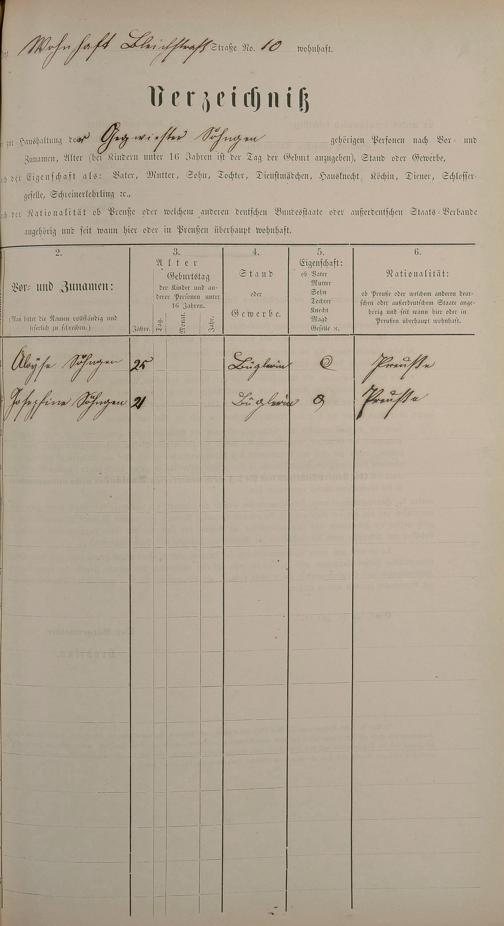 Wohnhaft Bleichstraß Straße No. 10 wohnhaft.
Verzeichniß
zur Haushaltung der Geschwister Söhngen gehörigen Personen nach Vor- und
Zunamen, Alter (bei Kindern unter 16 Jahren ist der Tag der Geburt anzugeben), Stand oder Gewerbe,
nach der Eigenschaft als: Vater, Mutter, Sohn, Tochter, Dienstmädchen, Hausknecht, Köchin, Diener, Schlosser-
geselle, Schreinerlehrling ꝛc.,
nach der Nationalität ob Preuße oder welchem anderen deutschen Bundesstaate oder außerdeutschen Staats-Verbande
angehörig und seit wann hier oder in Preußen überhaupt wohnhaft.
2.
Vor- und Zunamen:
(Man bittet die Namen vollständig und
leserlich zu schreiben.)
3.
Alter
Geburtstag
der Kinder und an-
derer Personen unter
16 Jahren.
Jahre. Tag. Monat. Jahr.
4.
Stand
oder
Gewerbe.
5.
Eigenschaft:
ob Vater
Mutter
Sohn
Tochter
Knecht
Magd
Geselle ꝛc.
6.
Nationalität:
ob Preuße oder welchem anderen deut-
schen oder außerdeutschen Staate ange-
hörig und seit wann hier oder in
Preußen überhaupt wohnhaft.
Aloyse Söhngen 25 Büglerin Preuße
Josephine Söhngen 21 Büglerin Preuße